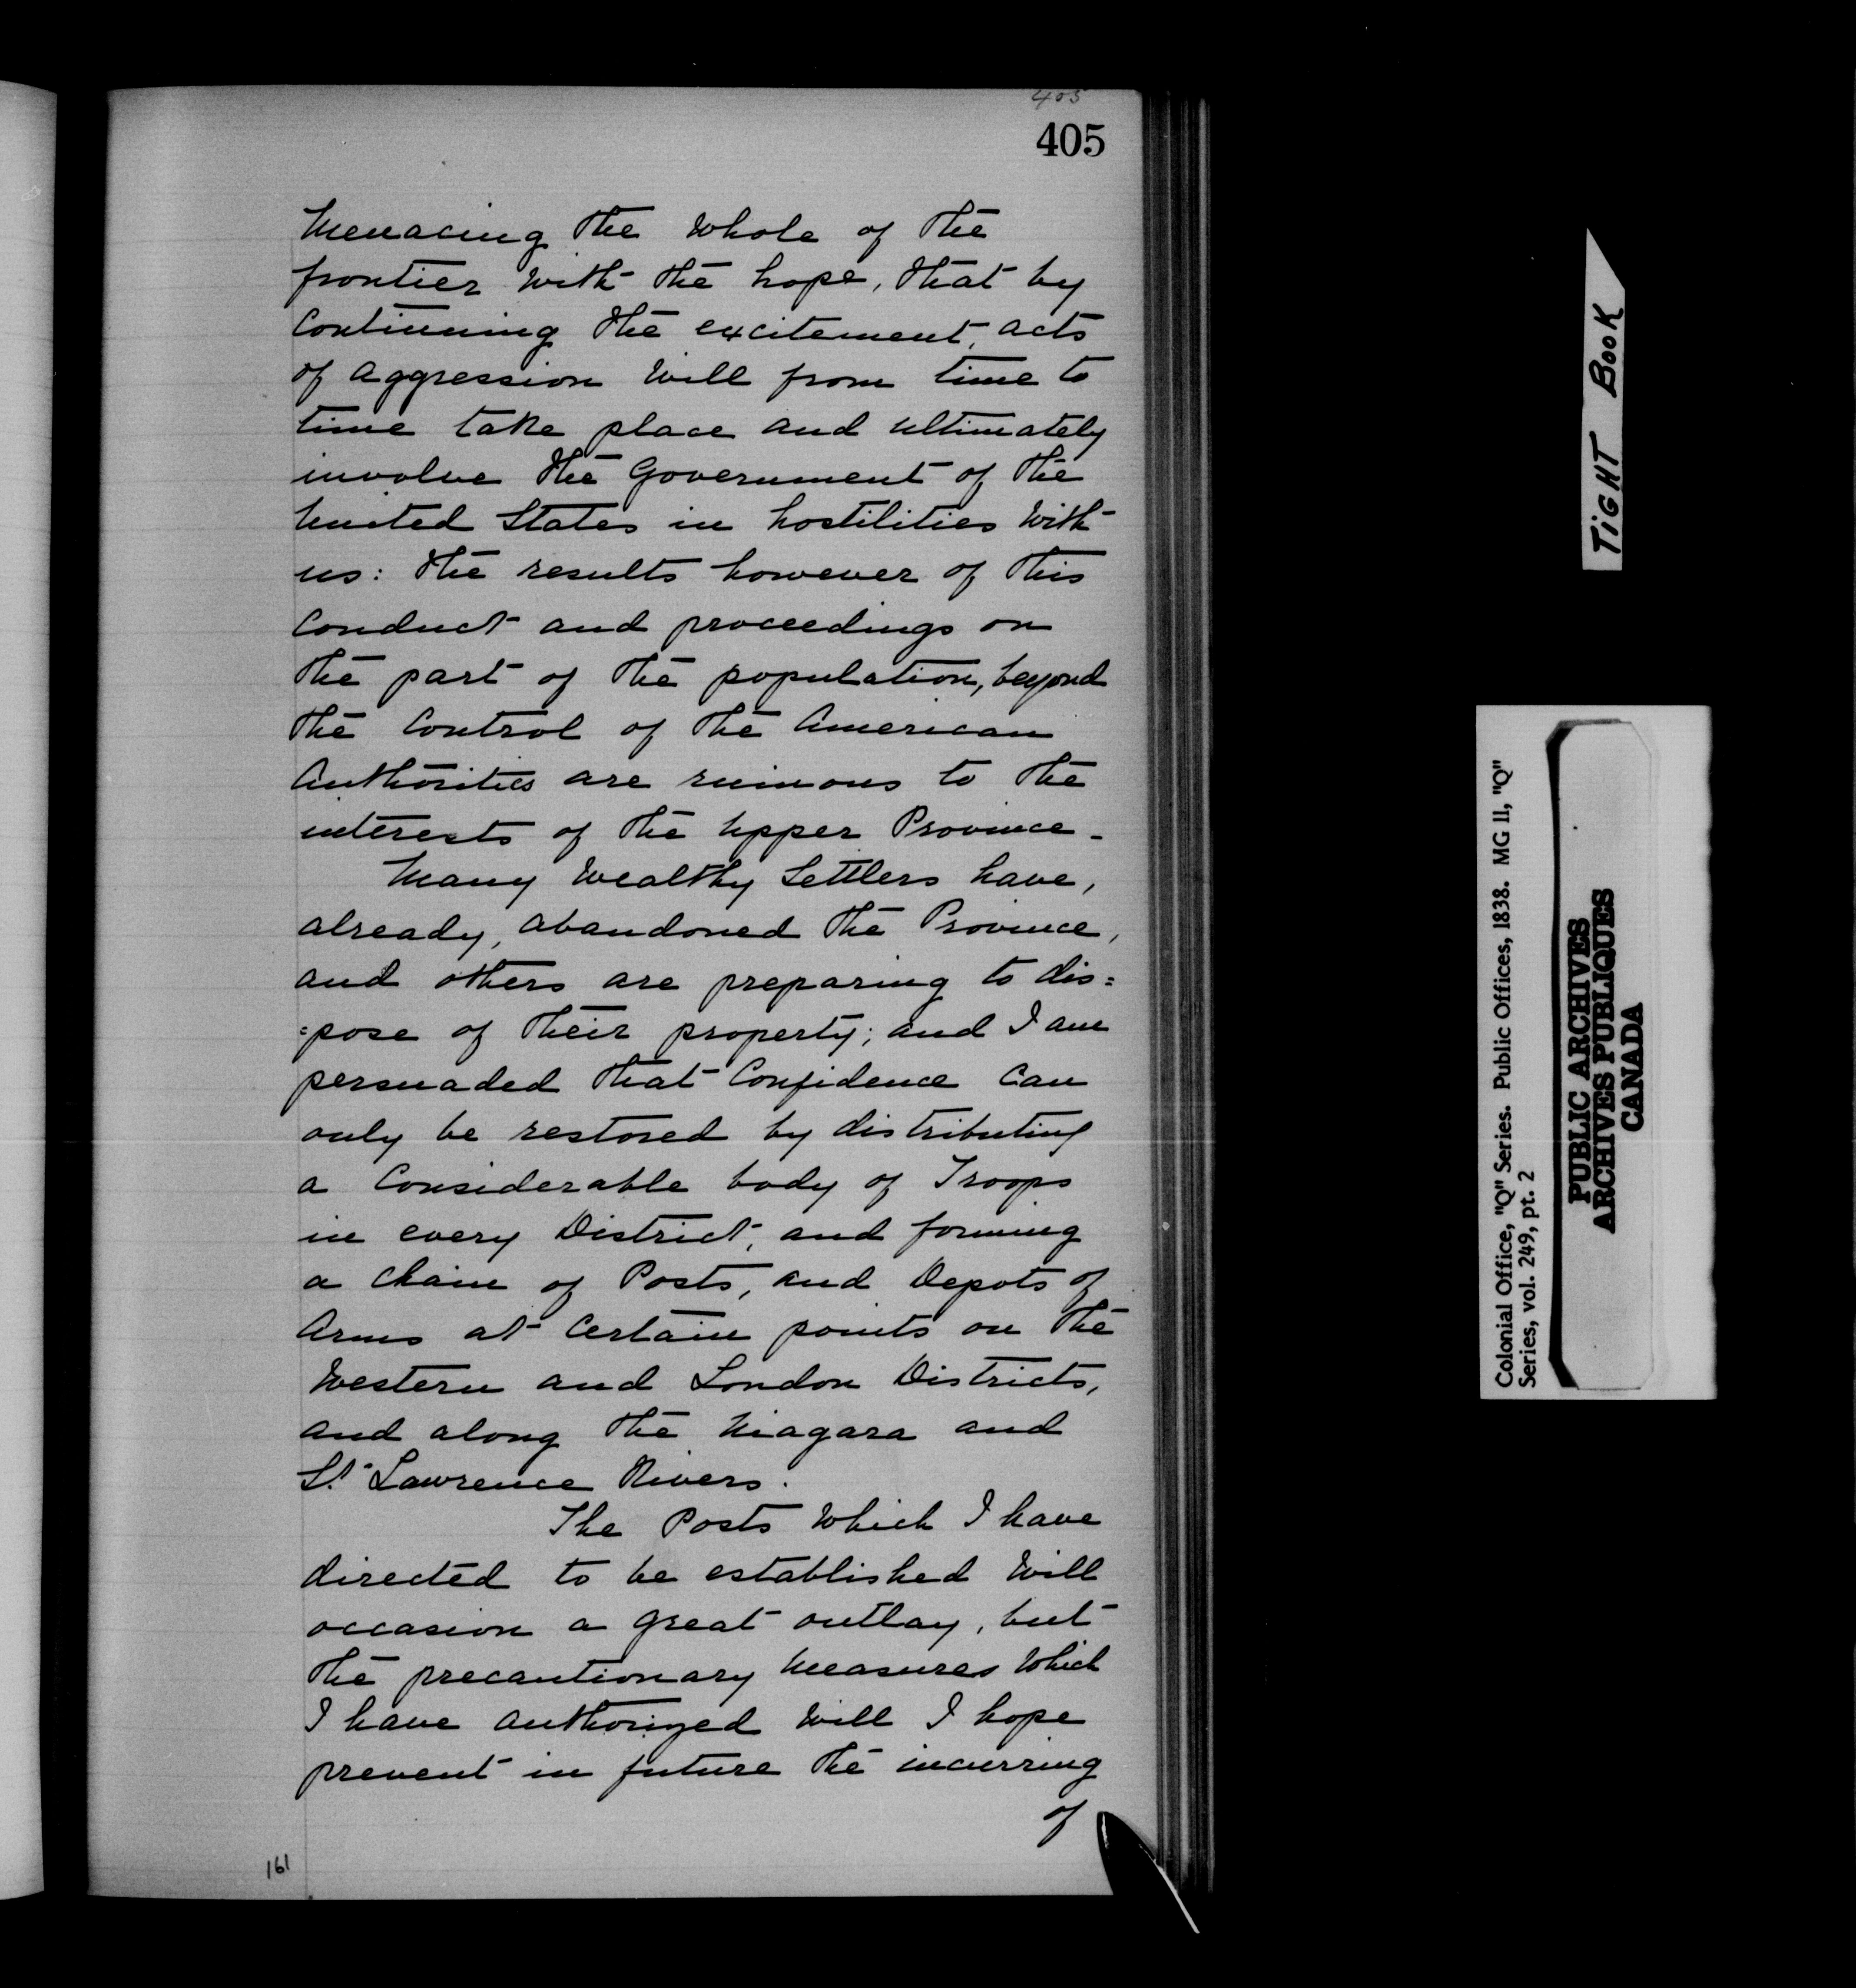 405
405
Menacing the whole of the
frontier with the hope, that by
Continuing the excitement, acts
of aggression will from time to
time take place and ultimately
involve the Government of the
United States in hostilities with
us: the results however of this
Conduct and proceedings on
the part of the population, beyond
the Control of the American
Authorities are ruinous to the
interests of the Upper Province_
Many Wealthy Settlers have,
already, abandoned the Province,
and others are preparing to dis=
=pose of their property; and I am
persuaded that Confidence Can
only be restored by distributing
a Considerable body of Troops
in every District, and forming
a chain of Posts, and Depots of
Arms at Certain points on the
Western and London Districts,
and along the Niagara and
St. Lawrence Rivers.
The Posts which I have
directed to be established will
occasion a great outlay, but
the precautionary Measures which
I have authorized will I hope
prevent in future the incurring
of
161
TIGHT BOOK
Colonial Office, "Q" Series. Public Offices, 1838. MG 11, "Q"
Series, vol. 249, pt. 2
PUBLIC ARCHIVES
ARCHIVES PUBLIQUES
CANADA